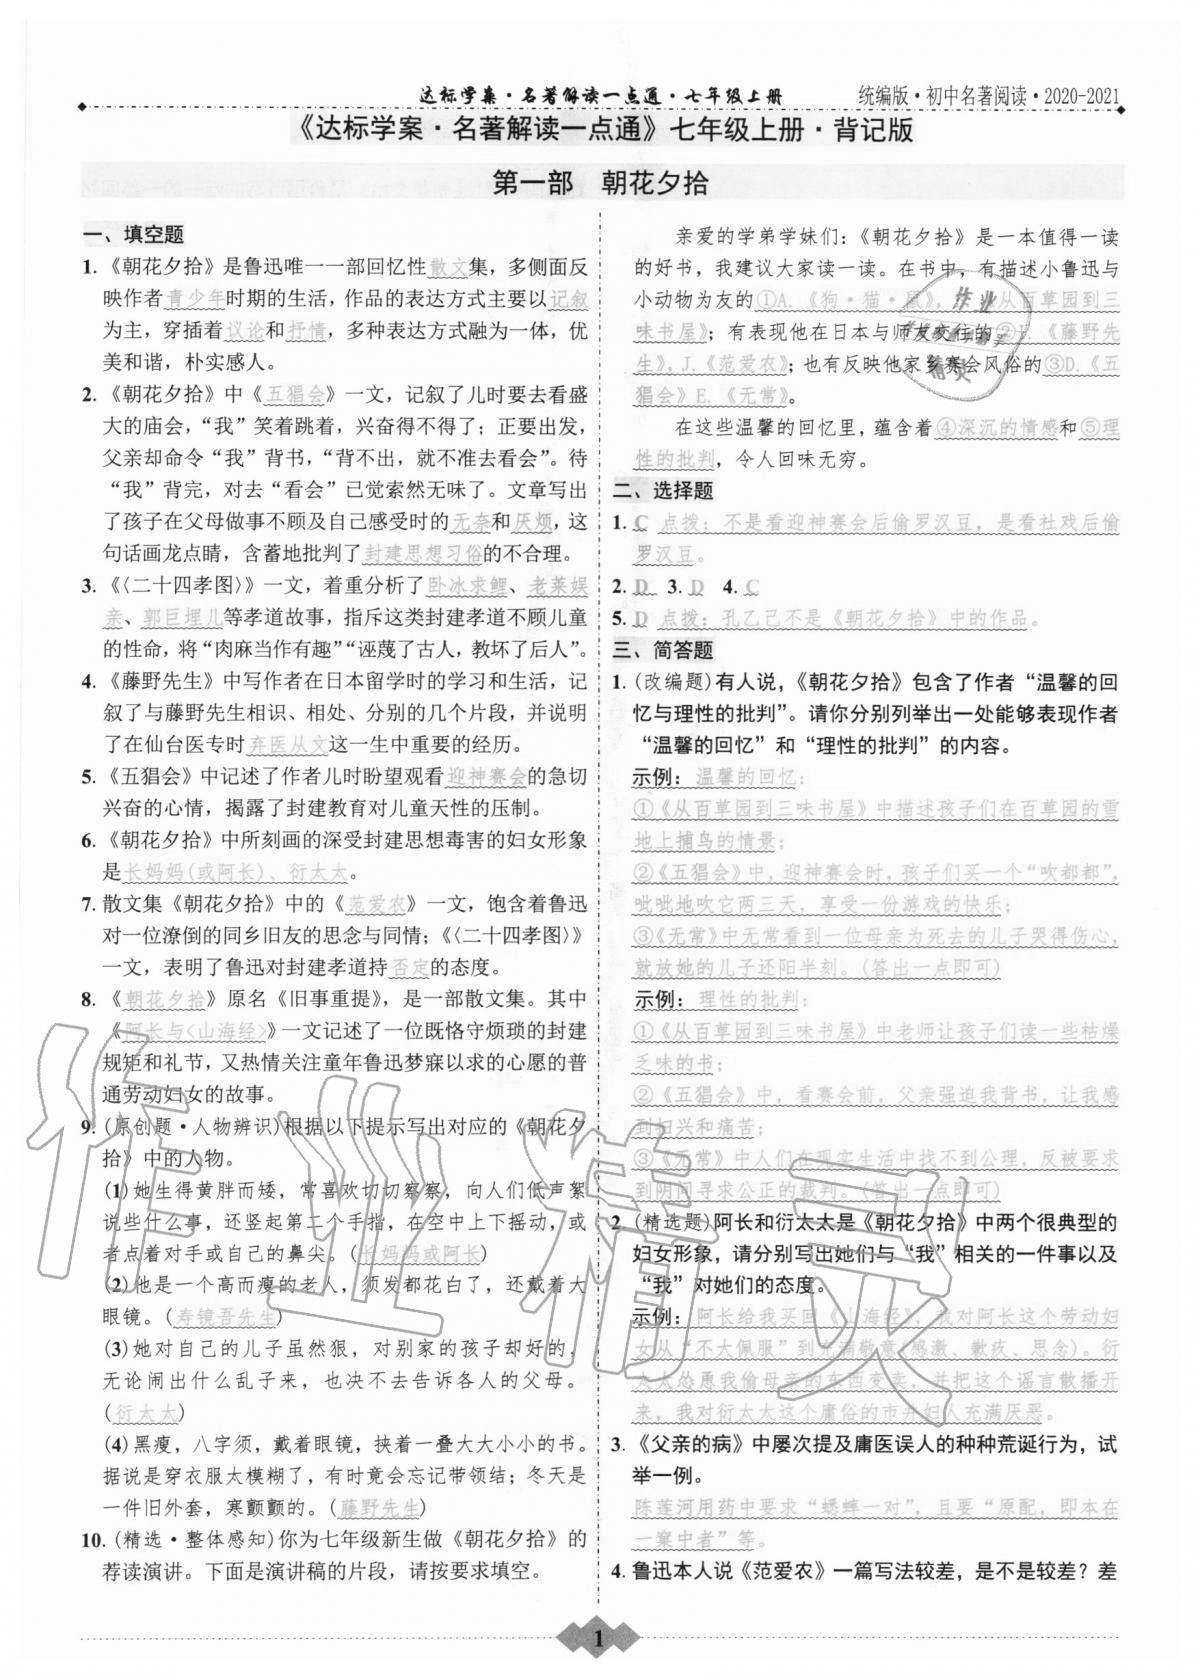 达标学案·名著解读一点通·七年级上册 统编版·初中名著阅读·2020-2021
《达标学案·名著解读一点通》七年级上册·背记版
第一部 朝花夕拾
一、填空题
1.《朝花夕拾》是鲁迅唯一一部回忆性散文集，多侧面反
映作者青少年时期的生活，作品的表达方式主要以记叙
为主，穿插着议论和抒情，多种表达方式融为一体，优
美和谐，朴实感人。
2.《朝花夕拾》中《五猖会》一文，记叙了儿时要去看盛
大的庙会，“我”笑着跳着，兴奋得不得了；正要出发，
父亲却命令“我”背书，“背不出，就不准去看会”。待
“我”背完，对去“看会”已觉索然无味了。文章写出
了孩子在父母做事不顾及自己感受时的无奈和厌烦，这
句话画龙点睛，含蓄地批判了封建思想习俗的不合理。
3.《〈二十四孝图〉》一文，着重分析了卧冰求鲤、老莱娱
亲、郭巨埋儿等孝道故事，指斥这类封建孝道不顾儿童
的性命，将“肉麻当作有趣”“诬蔑了古人，教坏了后人”。
4.《藤野先生》中写作者在日本留学时的学习和生活，记
叙了与藤野先生相识、相处、分别的几个片段，并说明
了在仙台医专时弃医从文这一生中重要的经历。
5.《五猖会》中记述了作者儿时盼望观看迎神赛会的急切
兴奋的心情，揭露了封建教育对儿童天性的压制。
6.《朝花夕拾》中所刻画的深受封建思想毒害的妇女形象
是长妈妈(或阿长)、衍太太。
7. 散文集《朝花夕拾》中的《范爱农》一文，饱含着鲁迅
对一位潦倒的同乡旧友的思念与同情；《〈二十四孝图〉》
一文，表明了鲁迅对封建孝道持否定的态度。
8.《朝花夕拾》原名《旧事重提》，是一部散文集。其中
《阿长与<山海经>》一文记述了一位既恪守烦琐的封建
规矩和礼节，又热情关注童年鲁迅梦寐以求的心愿的普
通劳动妇女的故事。
9. (原创题·人物辨识)根据以下提示写出对应的《朝花夕
拾》中的人物。
(1)她生得黄胖而矮，常喜欢切切察察，向人们低声絮
说些什么事，还竖起第二个手指，在空中上下摇动，或
者点着对手或自己的鼻尖。(长妈妈或阿长)
(2)他是一个高而瘦的老人，须发都花白了，还戴着大
眼镜。(寿镜吾先生)
(3)她对自己的儿子虽然狠，对别家的孩子却好的，
无论闹出什么乱子来，也决不去告诉各人的父母。
(衍太太)
(4)黑瘦，八字须，戴着眼镜，挟着一叠大大小小的书。
据说是穿衣服太模糊了，有时竟会忘记带领结；冬天是
一件旧外套，寒颤颤的。(藤野先生)
10. (精选·整体感知)你为七年级新生做《朝花夕拾》的
荐读演讲。下面是演讲稿的片段，请按要求填空。
亲爱的学弟学妹们：《朝花夕拾》是一本值得一读
的好书，我建议大家读一读。在书中，有描述小鲁迅与
小动物为友的①A.《狗·猫·鼠》，《从百草园到三
味书屋》；有表现他在日本与师友交往的②F.《藤野先
生》，J.《范爱农》；也有反映他家乡赛会风俗的③D.《五
猖会》E.《无常》。
在这些温馨的回忆里，蕴含着④深沉的情感和⑤理
性的批判，令人回味无穷。
二、选择题
1. C 点拨：不是看迎神赛会后偷罗汉豆，是看社戏后偷
罗汉豆。
2. D 3. D 4. C
5. D 点拨：孔乙己不是《朝花夕拾》中的作品。
三、简答题
1. (改编题)有人说，《朝花夕拾》包含了作者“温馨的回
忆与理性的批判”。请你分别列举出一处能够表现作者
“温馨的回忆”和“理性的批判”的内容。
示例：温馨的回忆：
①《从百草园到三味书屋》中描述孩子们在百草园的雪
地上捕鸟的情景；
②《五猖会》中，迎神赛会时，孩子们买一个“吹都都”，
吡吡地吹它两三天，享受一份游戏的快乐；
③《无常》中无常看到一位母亲为死去的儿子哭得伤心，
就放她的儿子还阳半刻。(答出一点即可)
示例：理性的批判：
①《从百草园到三味书屋》中老师让孩子们读一些枯燥
乏味的书；
②《五猖会》中，看赛会前，父亲强迫我背书，让我感
到扫兴和痛苦；
③《无常》中人们在现实生活中找不到公理，反被要求
到阴间寻求公正的裁判。(答出一点即可)
2 (精选题)阿长和衍太太是《朝花夕拾》中两个很典型的
妇女形象，请分别写出她们与“我”相关的一件事以及
“我”对她们的态度。
示例：阿长给我买回《山海经》，我对阿长这个劳动妇
女从“不大佩服”到充满敬意(感激、歉疚、思念)。衍
太太怂恿我偷母亲的东西变卖，并把这个谣言散播开
来，我对衍太太这个庸俗的市井妇人充满厌恶。
3.《父亲的病》中屡次提及庸医误人的种种荒诞行为，试
举一例。
陈莲河用药中要求“蟋蟀一对”，且要“原配，即本在
一窠中者”等。
4. 鲁迅本人说《范爱农》一篇写法较差，是不是较差？差
1
作业精灵
作业
精灵